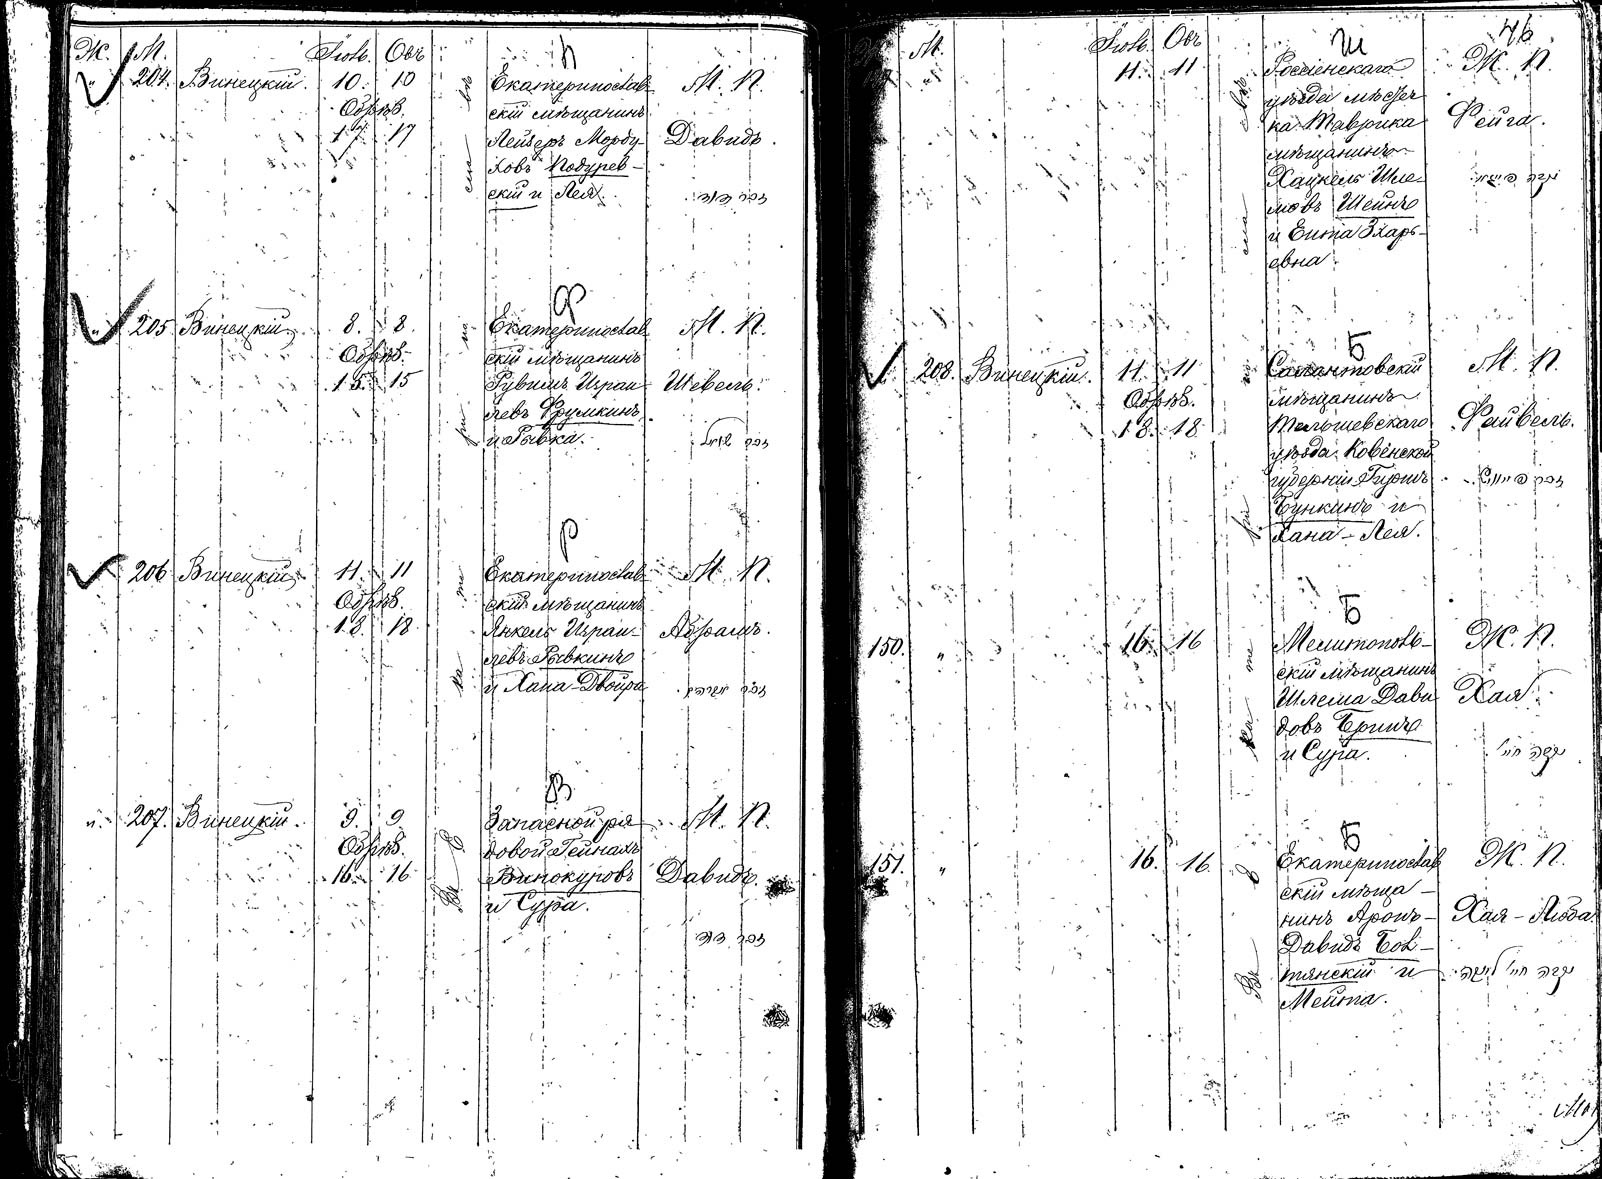 Ж. М. Іюль. Овъ
П
204. Винецкій. 10. 10
Обрѣз.
17. 17
Екатеринослав-
скій мѣщанинъ
Лейзеръ Морду-
ховъ Подурев-
скій и Лея.
М. П.
Давидъ.
זכר דוד
Ф
205 Винецкій. 8. 8.
Обрѣз.
15. 15
Екатеринослав-
скій мѣщанинъ
Рувимъ Израи-
левъ Фрумкинъ
и Рывка.
М. П.
Шевель.
Р
206 Винецкій. 11. 11
Обрѣз.
18. 18
Екатеринослав-
скій мѣщанинъ
Янкель Израи-
левъ Рывкинъ
и Хана-Двойра
М. П.
Абрамъ.
זכר אברהם
В
207. Винецкій. 9. 9.
Обрѣз.
16. 16
Запасной ря-
довой Гейнахъ
Винокуровъ
и Сура.
М. П.
Давидъ.
זכר דוד
Въ
М. Іюль. Овъ 46
Ш
11. 11
Россіенскаго
уѣзда мѣстеч
ка Таврика
мѣщанинъ
Хацкель Шле-
мовъ Шейнъ
и Еита Зхарь-
евна.
Ж. П.
Фейга.
Б
208. Винецкій. 11. 11
Обрѣз.
18. 18
Салантовскій
мѣщанинъ
Тельшевскаго
уѣзда Ковенской
губерніи Гиршъ
Бункинъ и
Хана-Лея.
М. П.
Файвель.
Б
150. " 16. 16
Мелитополь-
скій мѣщанинъ
Шлема Дави
довъ Бринъ
и Сура.
Ж. П.
Хая.
נקבה חי'
Б
151. " 16. 16.
Екатеринослав
скій мѣща-
нинъ Аронъ-
Давидъ Бов-
тянскій и
Мейта.
Ж. П.
Хая-Люба.
Въ